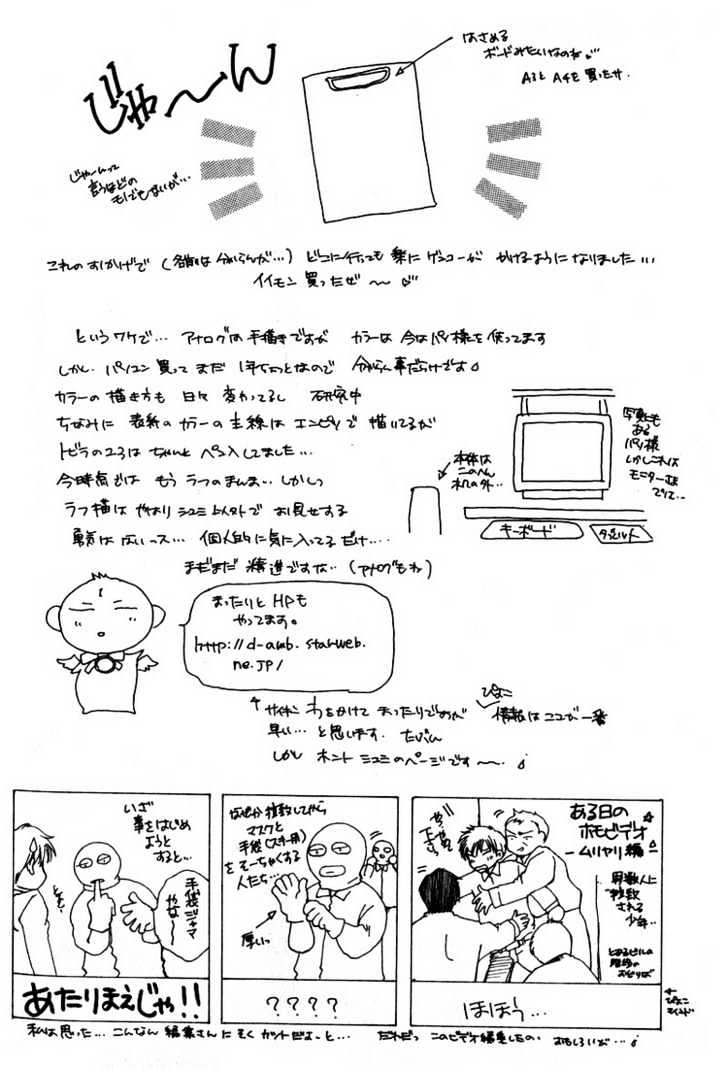 じゃ〜ん
はさめる
ボードみたいなのね…
A3とA4を買ったサ.
じゃーんって
言うほどの
モノでもないが…
これのおかげで(名前は分からんが…)どこに行っても楽にゲンコーがかけるようになりました…
イイモン買ったぜ〜
というワケで…アナログは手描きですがカラーは今はパソ様を使ってます
しかし.パソコン買ってまだ1年ちょっとなので分からん事だらけです
カラーの描き方も日々変わってるし研究中
ちなみに表紙のカラーの主線はエンピツで描いてるが
トビラの2ヨはちゃんとペン入しました…
今時点ではもうラフのまんま…しかしっ
ラフ描はやはりシュミ以外でお見せする
勇気はないっス…個人的に気に入ってるだけ…
まだまだ精進ですな…(アナログもね)
本体は
このへん
机の外…
写真にも
ある
パソ様
しかしこれは
モニターさま
でして…
キーボード
タブレット
まったりとHPも
やってます。
http://d-amb.starweb.
ne.jp/
サイキンわをかけてまったりですが
ぴょこ
情報はココが一番
早い…と思います.たぶん
しかしホントシュミのページです〜.
ある日の
ホモビデオ
－ムリヤリ編－
複数人に
される
少年…
とあるビルの
階段の
おどりば
ほほう…
なぜか複数してから
マスクと
手袋(スキー用)
をそーちゃくする
人たち…
厚いっ
????
いざ
事をはじめ
ようと
すると…
手袋ジャマ
やな〜
あたりまえじゃ!!
私は思った…こんなん編集さんにそくカットだよーと…だれだっこのビデオ編集したの.おもしろいが…